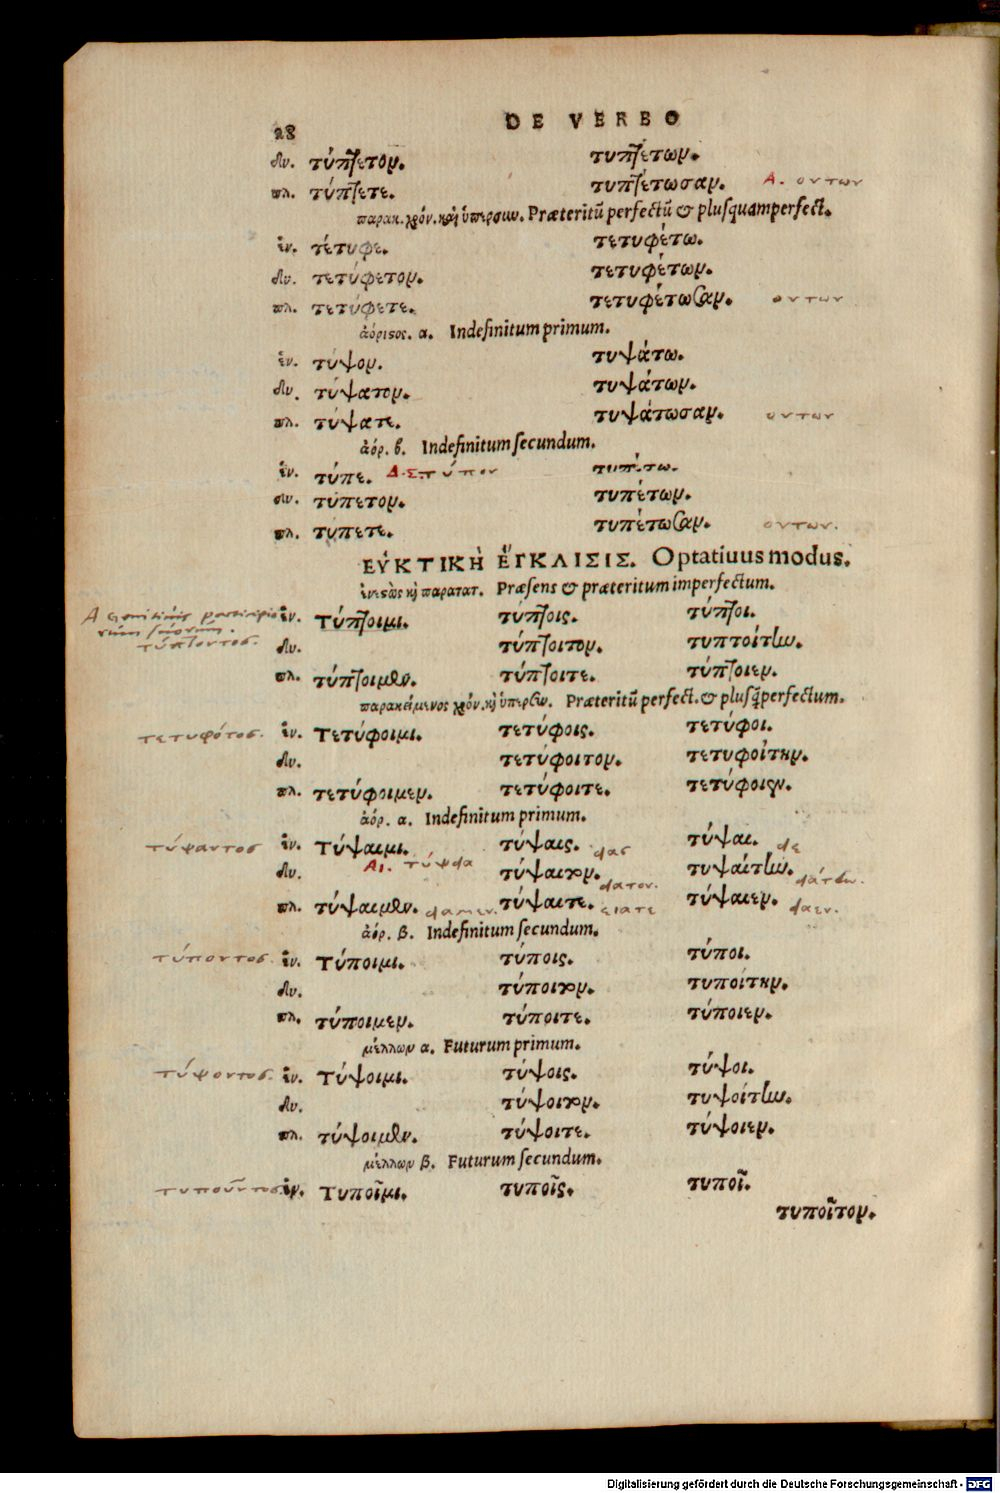 28 DE VERBO
δυ. τύπτετον. τυπτέτων.
πλ. τύπτετε. τυπτέτωσαν. A. οντων
παρακ. χρόν. καὶ ὑπερσυω. Præteritũ perfectũ & pluſquamperfect.
ἑν. τέτυφε. τετυφέτω.
δυ. τετύφετον. τετυφέτων.
πλ. τετύφετε. τετυφέτωσαν. οντων
ἀόριστος. α. Indefinitum primum.
ἑν. τύψον. τυψάτω.
δυ. τύψατον. τυψάτων.
πλ. τύψατε. τυψάτωσαν. οντων
ἀόρ. β. Indefinitum ſecundum.
ἑν. τύπε. Δ.Σ. τύπον τυπέτω.
δυ. τύπετον. τυπέτων.
πλ. τύπετε. τυπέτωσαν. οντων.
ΕΥ̓ΚΤΙΚῊ ἜΓΚΛΙΣΙΣ. Optatiuus modus.
ἐνεστὼς καὶ παρατατ. Præſens & præteritum imperfectum.
A Genitiuis participio ἑν. Τύπτοιμι. τύπτοις. τύπτοι.
rum suorum.
τύπτοντος. δυ. τύπτοιτον. τυπτοίτην.
πλ. τύπτοιμεν. τύπτοιτε. τύπτοιεν.
παρακείμενος χρόν. καὶ ὑπερσυ. Præteritũ perfect. & pluſq̃perfectum.
τετυφότος. ἑν. Τετύφοιμι. τετύφοις. τετύφοι.
δυ. τετύφοιτον. τετυφοίτην.
πλ. τετύφοιμεν. τετύφοιτε. τετύφοιεν.
ἀόρ. α. Indefinitum primum.
τύψαντος ἑν. Τύψαιμι. τύψαις. τύψαι.
AI. τύψεια
δυ. τύψαιτον. τυψαίτην.
πλ. τύψαιμεν. τύψαιτε. ειατε τύψαιεν.
ἀόρ. β. Indefinitum ſecundum.
τύποντος. ἑν. Τύποιμι. τύποις. τύποι.
δυ. τύποιτον. τυποίτην.
πλ. τύποιμεν. τύποιτε. τύποιεν.
μέλλων α. Futurum primum.
τύψοντος. ἑν. Τύψοιμι. τύψοις. τύψοι.
δυ. τύψοιτον. τυψοίτην.
πλ. τύψοιμεν. τύψοιτε. τύψοιεν.
μέλλων β. Futurum ſecundum.
τυποῦντος. ἑν. Τυποῖμι. τυποῖς. τυποῖ.
τυποῖτον.
Digitalisierung gefördert durch die Deutsche Forschungsgemeinschaft - DFG